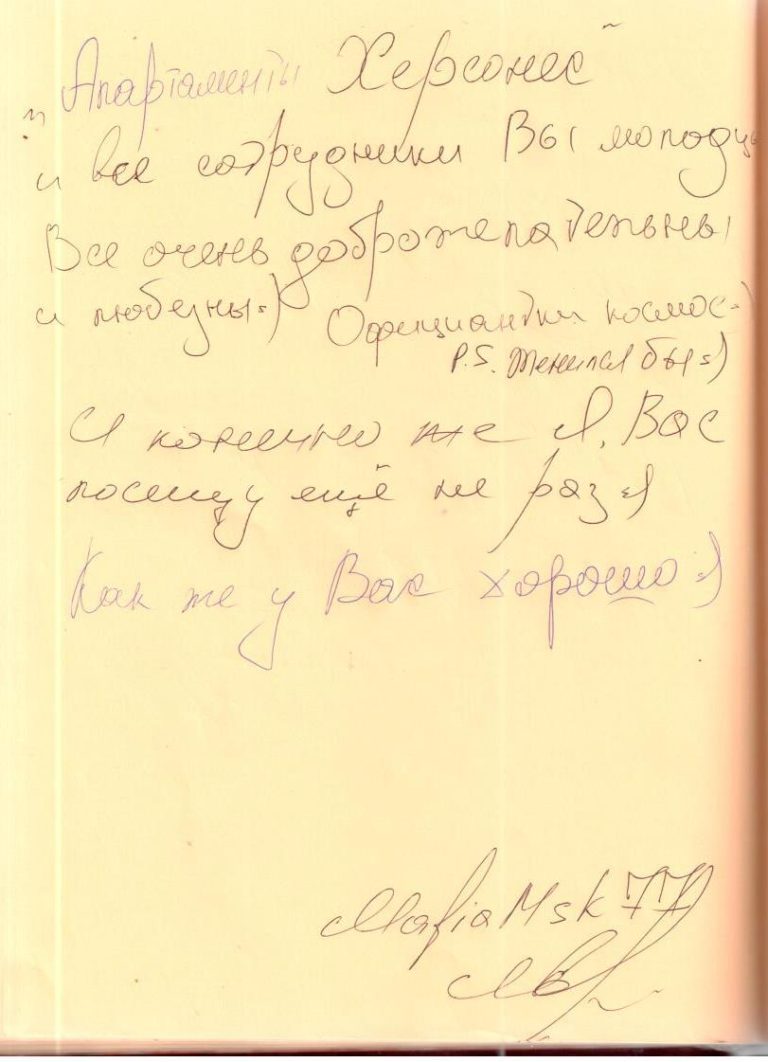 "Апартаменты Херсонес"
и все сотрудники Вы молодцы
Все очень доброжелательны
и любезны=) Официантки космос=)
P.S. Женился бы=)
И конечно же я, Вас
посещу ещё не раз=)
Как же у Вас хорошо=)
MafiaMsk77